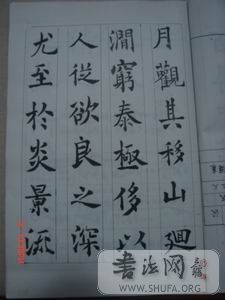 月觀其移山廻
澗窮泰極侈以
人從欲良之深
尤至於炎景流
書法网
WWW.SHUFA.ORG